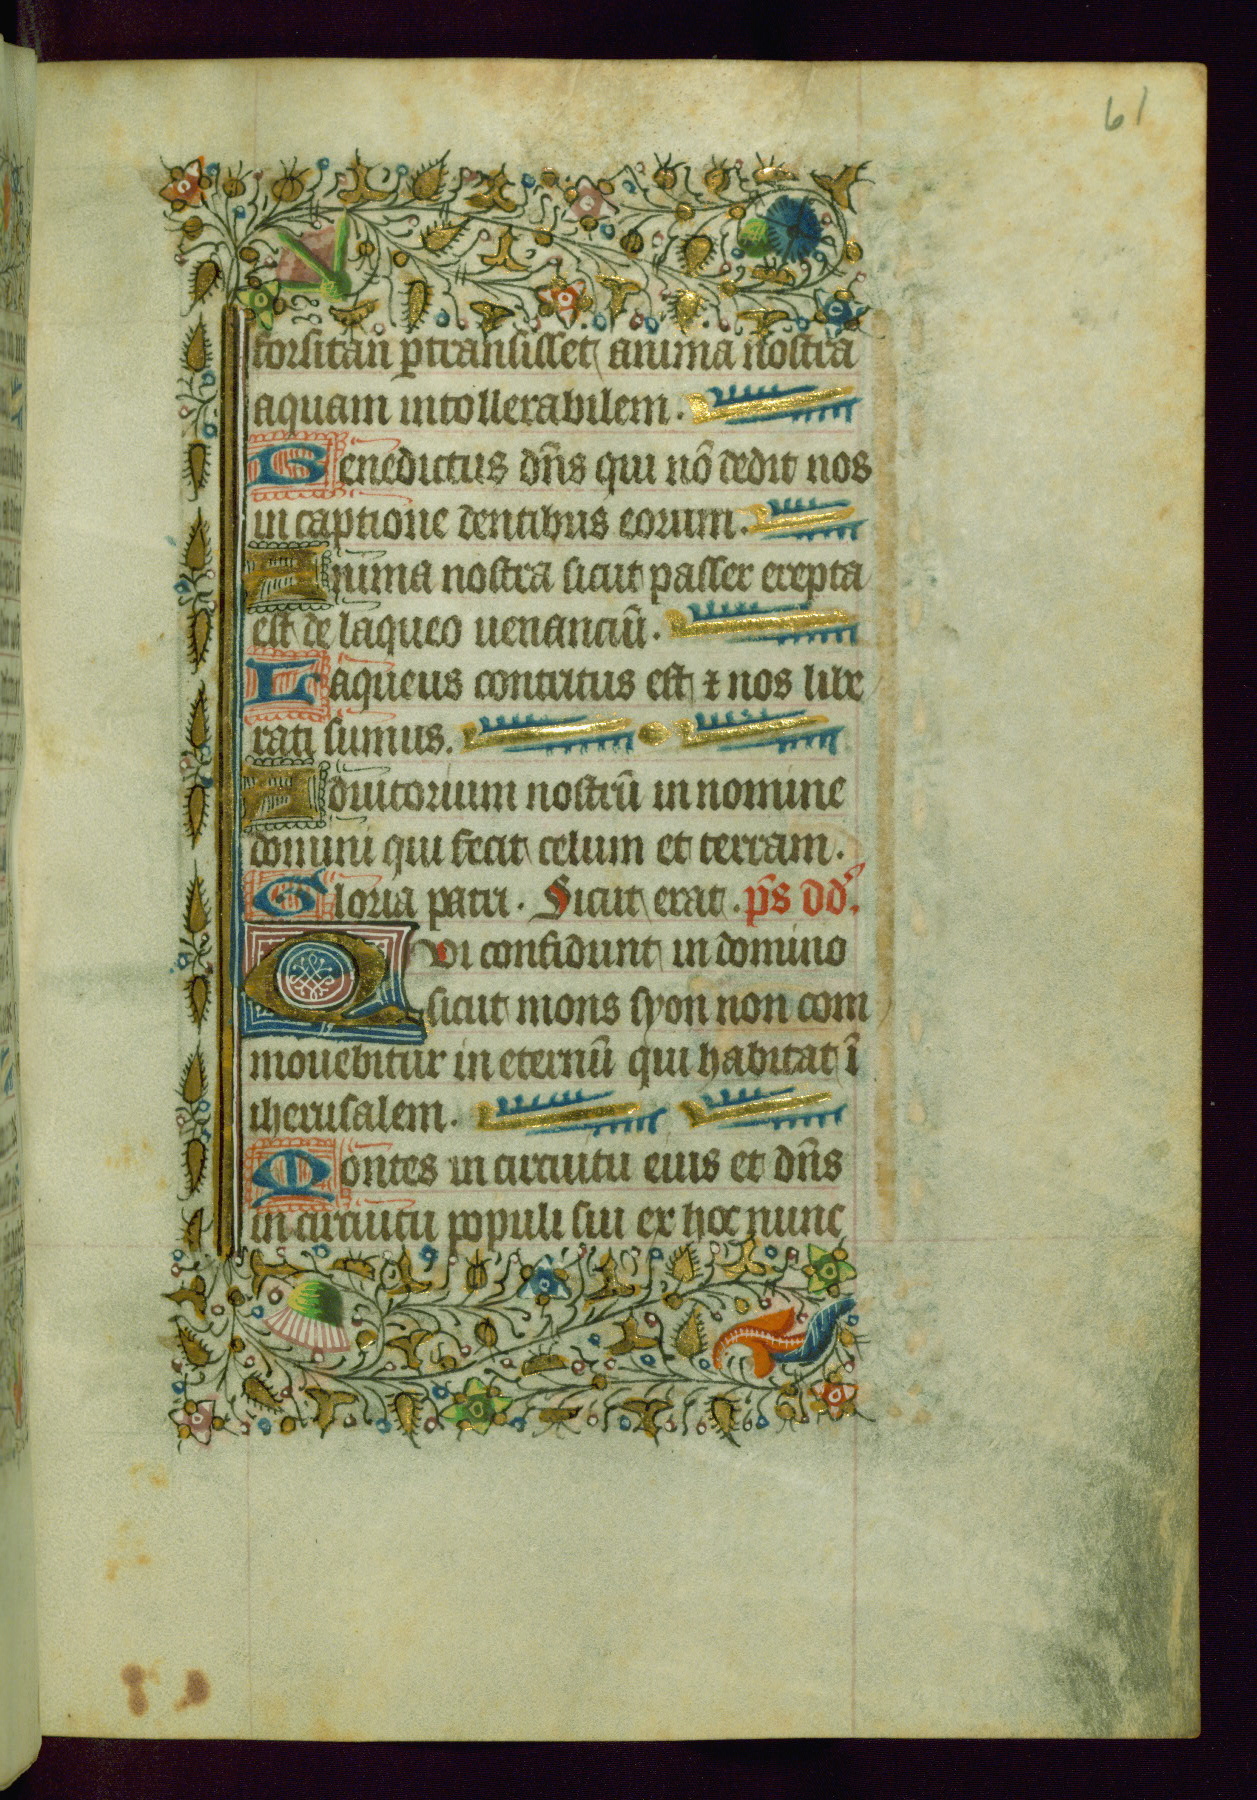 61
forsitan ꝑtransisset anima nostra
aquam intollerabilem.
Benedictus dn̄s qui nō dedit nos
in captione dentibus eorum.
Anima nostra sicut passer erepta
est de laqueo uenanciū.
Laqueus contritus est ⁊ nos libe
rati sumus.
Adiutorium nostrū in nomine
domini qui fecit celum et terram.
Gloria patri. Sicut erat. p̄s dd̄.
Qui confidunt in domino
sicut mons syon non com
mouebitur in eternū qui habitat ī
iherusalem.
Montes in circuitu eius et dn̄s
in circuitu populi sui ex hoc nunc